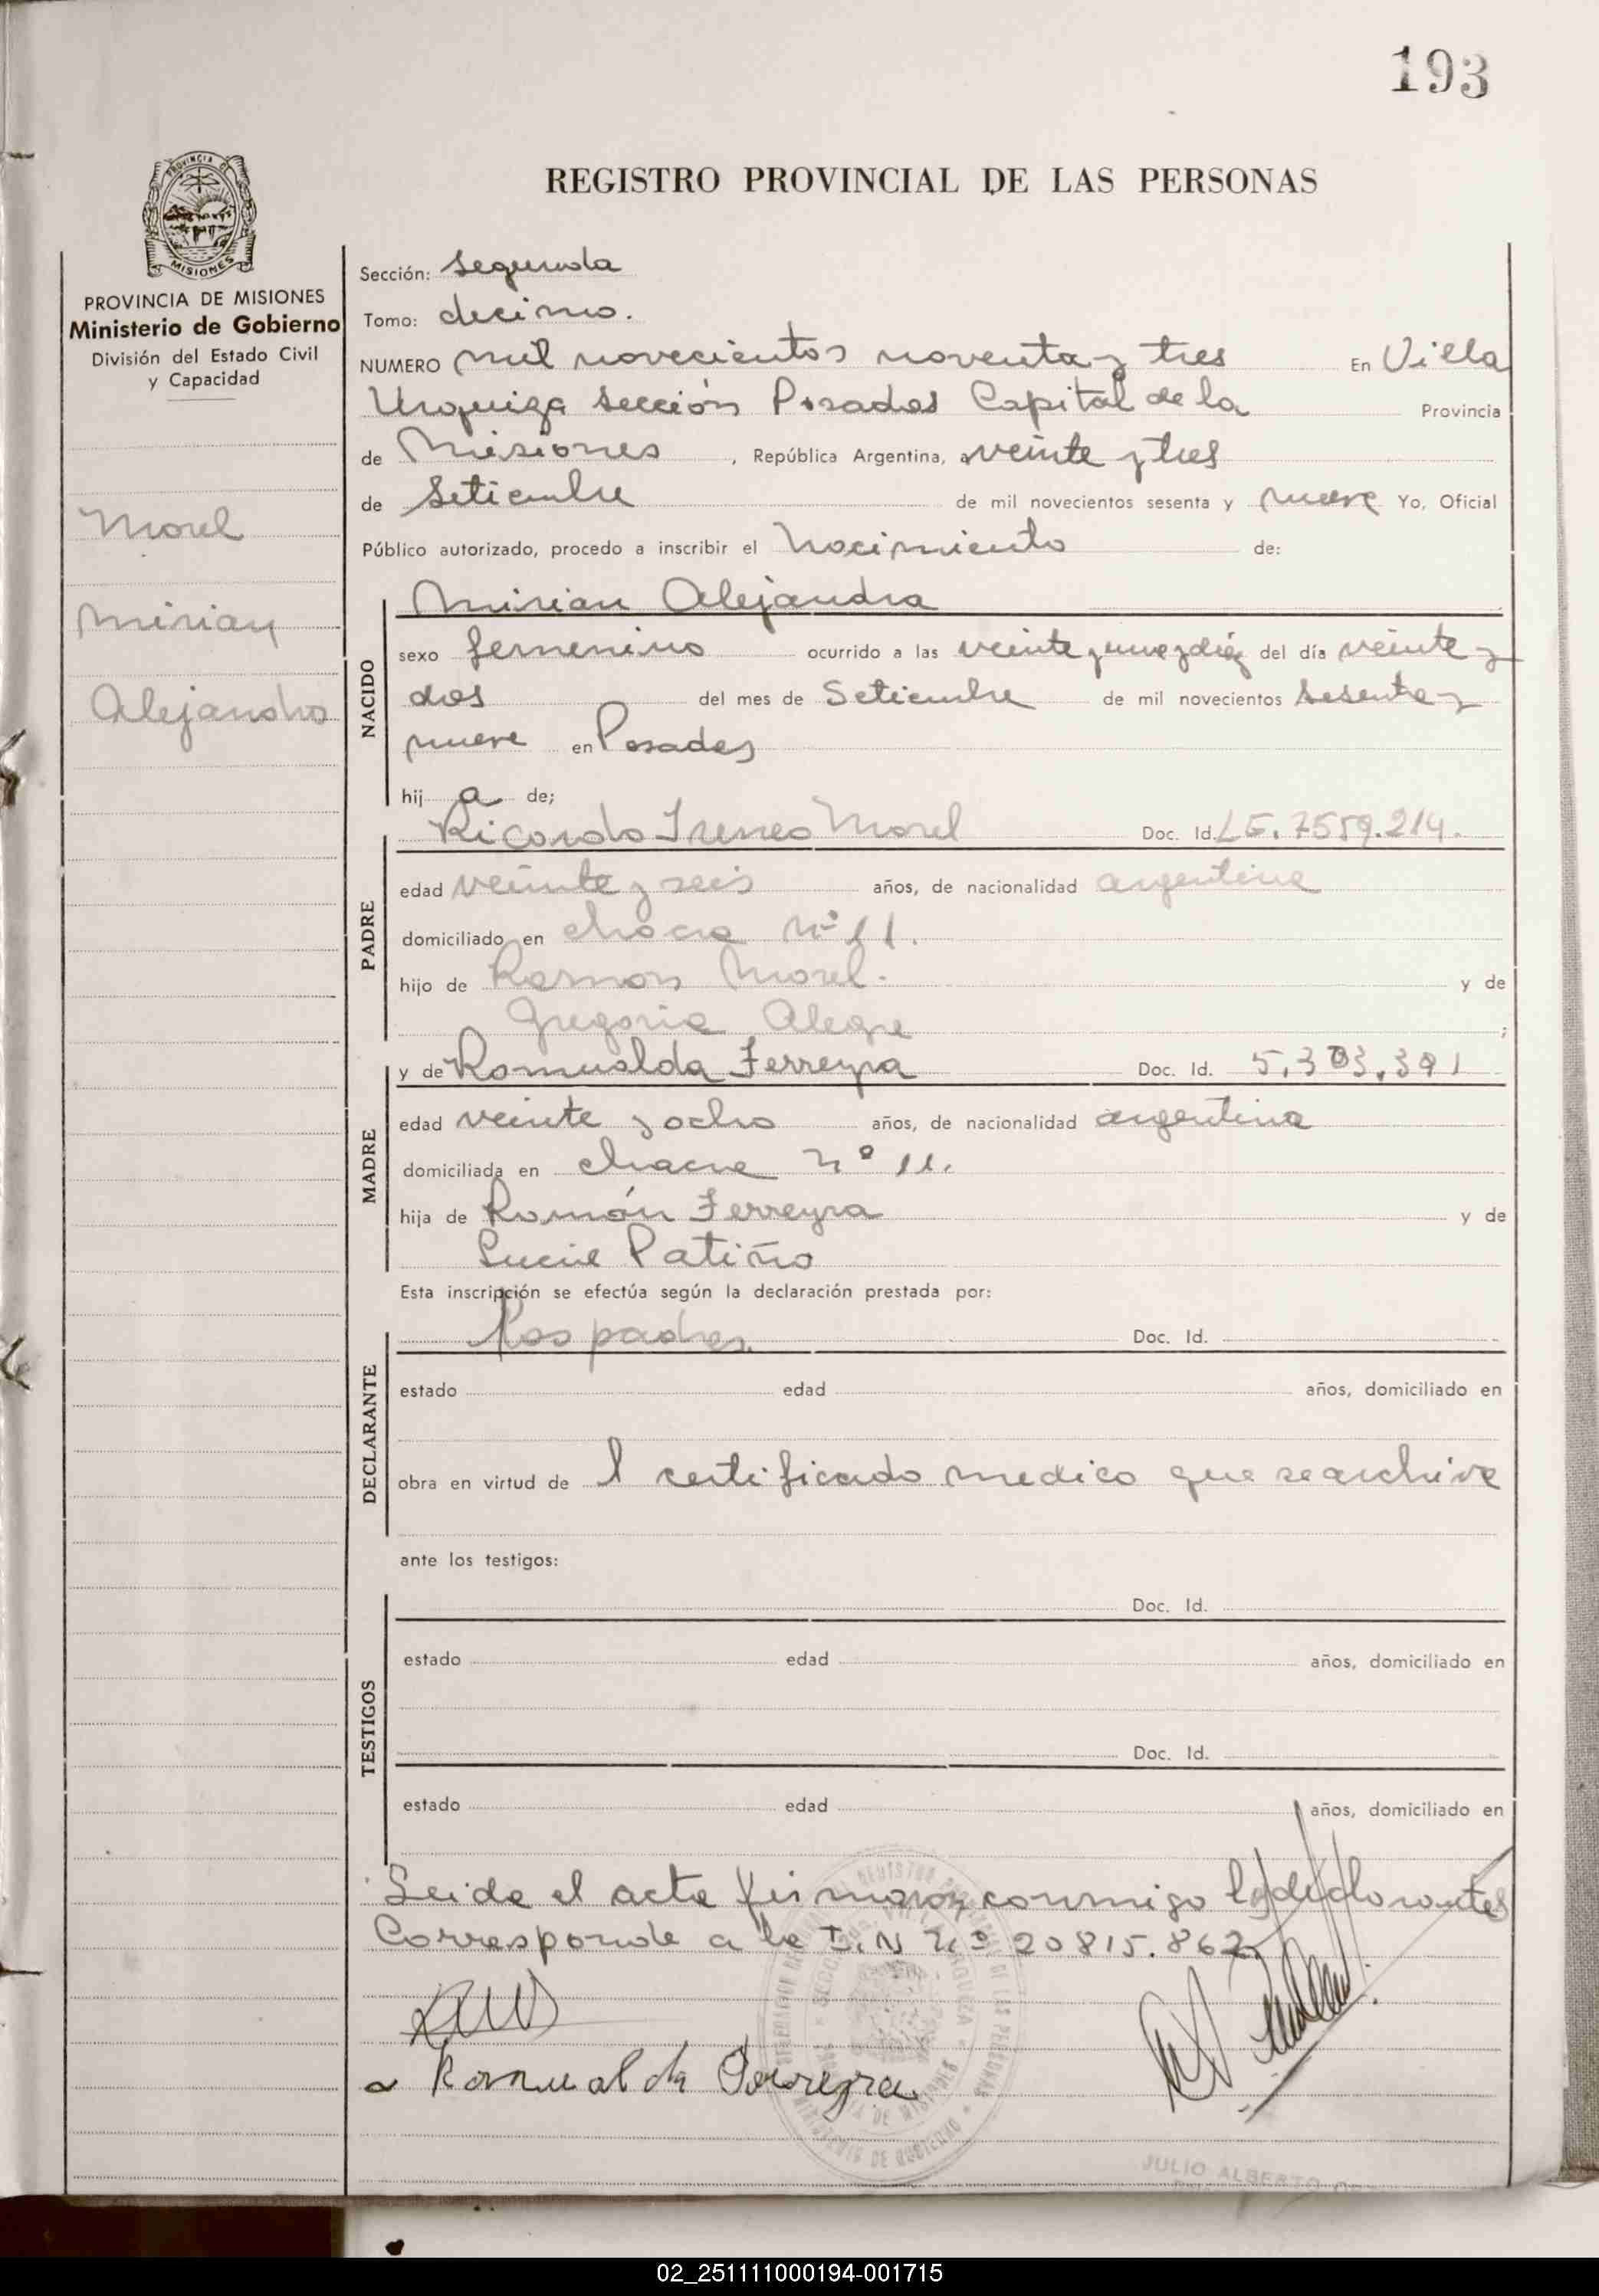 193
PROVINCIA DE
MISIONES
REGISTRO PROVINCIAL DE LAS PERSONAS
PROVINCIA DE MISIONES
Ministerio de Gobierno
División del Estado Civil
y Capacidad
Morel
Mirian
Alejandra
Sección: Segunda
Tomo: decimo.
NUMERO mil novecientos noventa y tres En Villa
Urquiza sección Posadas Capital de la Provincia
de Misiones, República Argentina, a veinte y tres
de Setiembre de mil novecientos sesenta y nueve Yo, Oficial
Público autorizado, procedo a inscribir el Nacimiento de:
NACIDO
Mirian Alejandra
sexo femenino ocurrido a las veinte y una y diéz del día veinte y
dos del mes de Setiembre de mil novecientos sesenta y
nueve en Posadas
hij a de;
PADRE
Ricardo Ireneo Morel Doc. Id. LE. 7559.214.
edad veinte y seis años, de nacionalidad argentina
domiciliado en chacra nº 11.
hijo de Ramon Morel. y de
Gregoria Alegre ;
MADRE
y de Romualda Ferreyra Doc. Id. 5.303.391
edad veinte y ocho años, de nacionalidad argentina
domiciliada en chacra nº 11.
hija de Román Ferreyra y de
Lucia Patiño
Esta inscripción se efectúa según la declaración prestada por:
DECLARANTE
los padres Doc. Id.
estado edad años, domiciliado en
obra en virtud de l certificado medico que se archiva
ante los testigos:
TESTIGOS
Doc. Id.
estado edad años, domiciliado en
Doc. Id.
estado edad años, domiciliado en
Leida el acta firmaron conmigo los declarantes
Corresponde a la I.N nº 20815.862
Romualda Ferreyra
JULIO ALBERTO
02_251111000194-001715